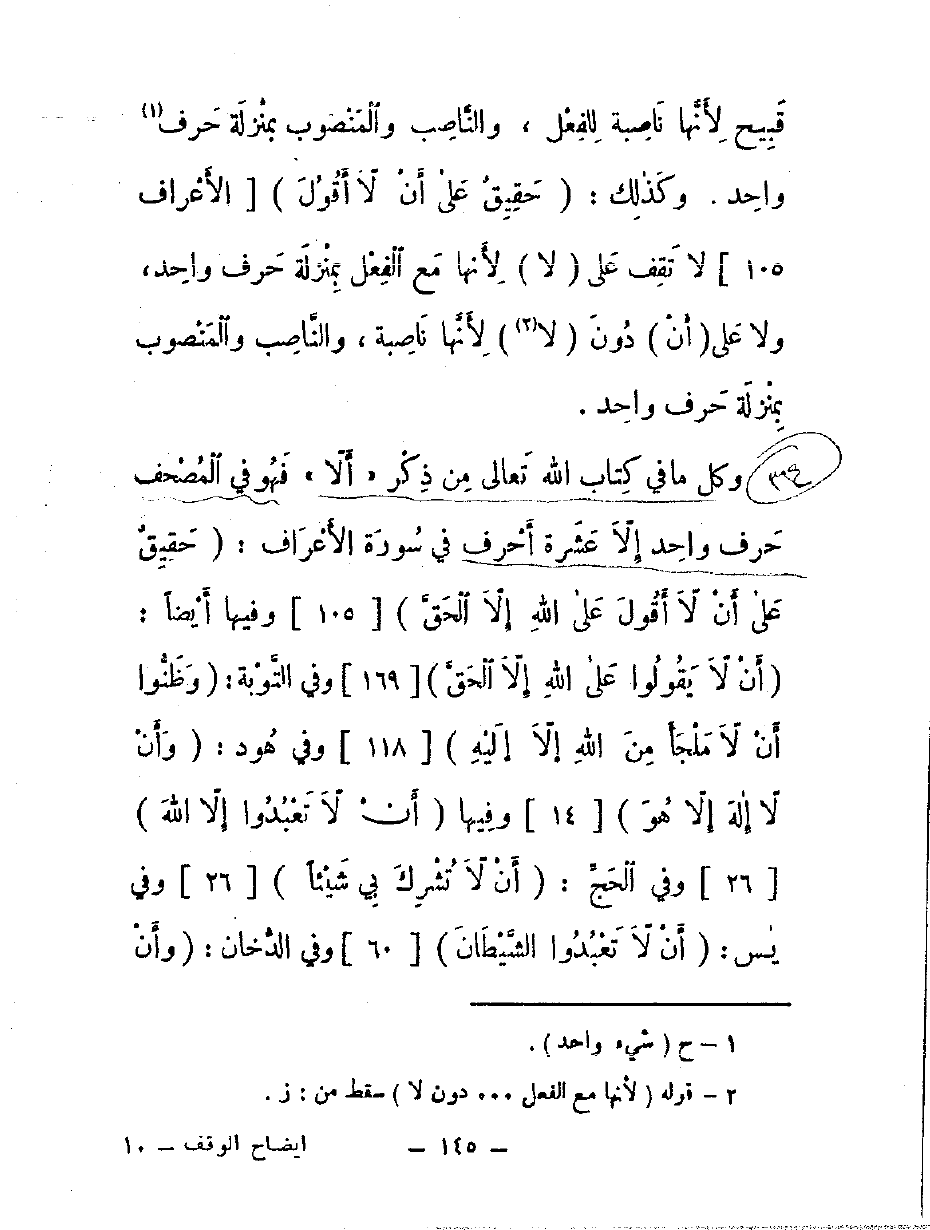 قَبِيح لِأَنَّها نَاصِبة لِلفِعْل ، والنَّاصِب والمَنْصوب بِمنْزِلَة حَرف(١)
واحِد . وكَذٰلِك : ( حَقِيقٌ عَلىٰ أَنْ لَا أَقُولَ ) [ الأَعْراف
١٠٥ ] لا تَقِف عَلى ( لا ) لِأَنها مَع الفِعْل بِمْنزلَة حَرف واحِد،
ولا عَلى ( أَنْ ) دُونَ ( لا(٢) ) لِأَنَّها نَاصِبة ، والنَّاصِب والمَنْصوب
بِمْنزلَة حَرف واحِد .
٣٩٤ وكل ما في كِتاب الله تَعالى مِن ذِكْر « أَلَّا » فَهُو في المُصْحف
حَرف واحِد إِلَّا عَشَرة أَحْرف في سُورَة الأَعْرَاف : ( حَقِيقٌ
عَلىٰ أَنْ لَا أَقُولَ عَلىٰ اللهِ إِلَّا الحَقَّ ) [ ١٠٥ ] وفيها أَيْضاً :
( أَنْ لَا يَقُولُوا عَلىٰ اللهِ إِلَّا الحَقَّ ) [ ١٦٩ ] وفي التَّوْبَة : ( وَظَنُّوا
أَنْ لَا مَلْجَأَ مِنَ اللهِ إِلَّا إِلَيْهِ ) [ ١١٨ ] وفي هُود : ( وَأَنْ
لَا إِلٰهَ إِلَّا هُوَ ) [ ١٤ ] وفِيها ( أَنْ لَا تَعْبُدُوا إِلَّا اللهَ )
[ ٢٦ ] وفي الحَجِّ : ( أَنْ لَا تُشْرِكَ بِي شَيْئاً ) [ ٢٦ ] وفي
يٰس : ( أَنْ لَا تَعْبُدُوا الشَّيْطَانَ ) [ ٦٠ ] وفي الدُّخان : ( وأَنْ
١ – ح ( شيء واحد ) .
٢ – قوله ( لأنها مع الفعل ... دون لا ) سقط من : ز .
– ١٤٥ – ايضاح الوقف – ١٠